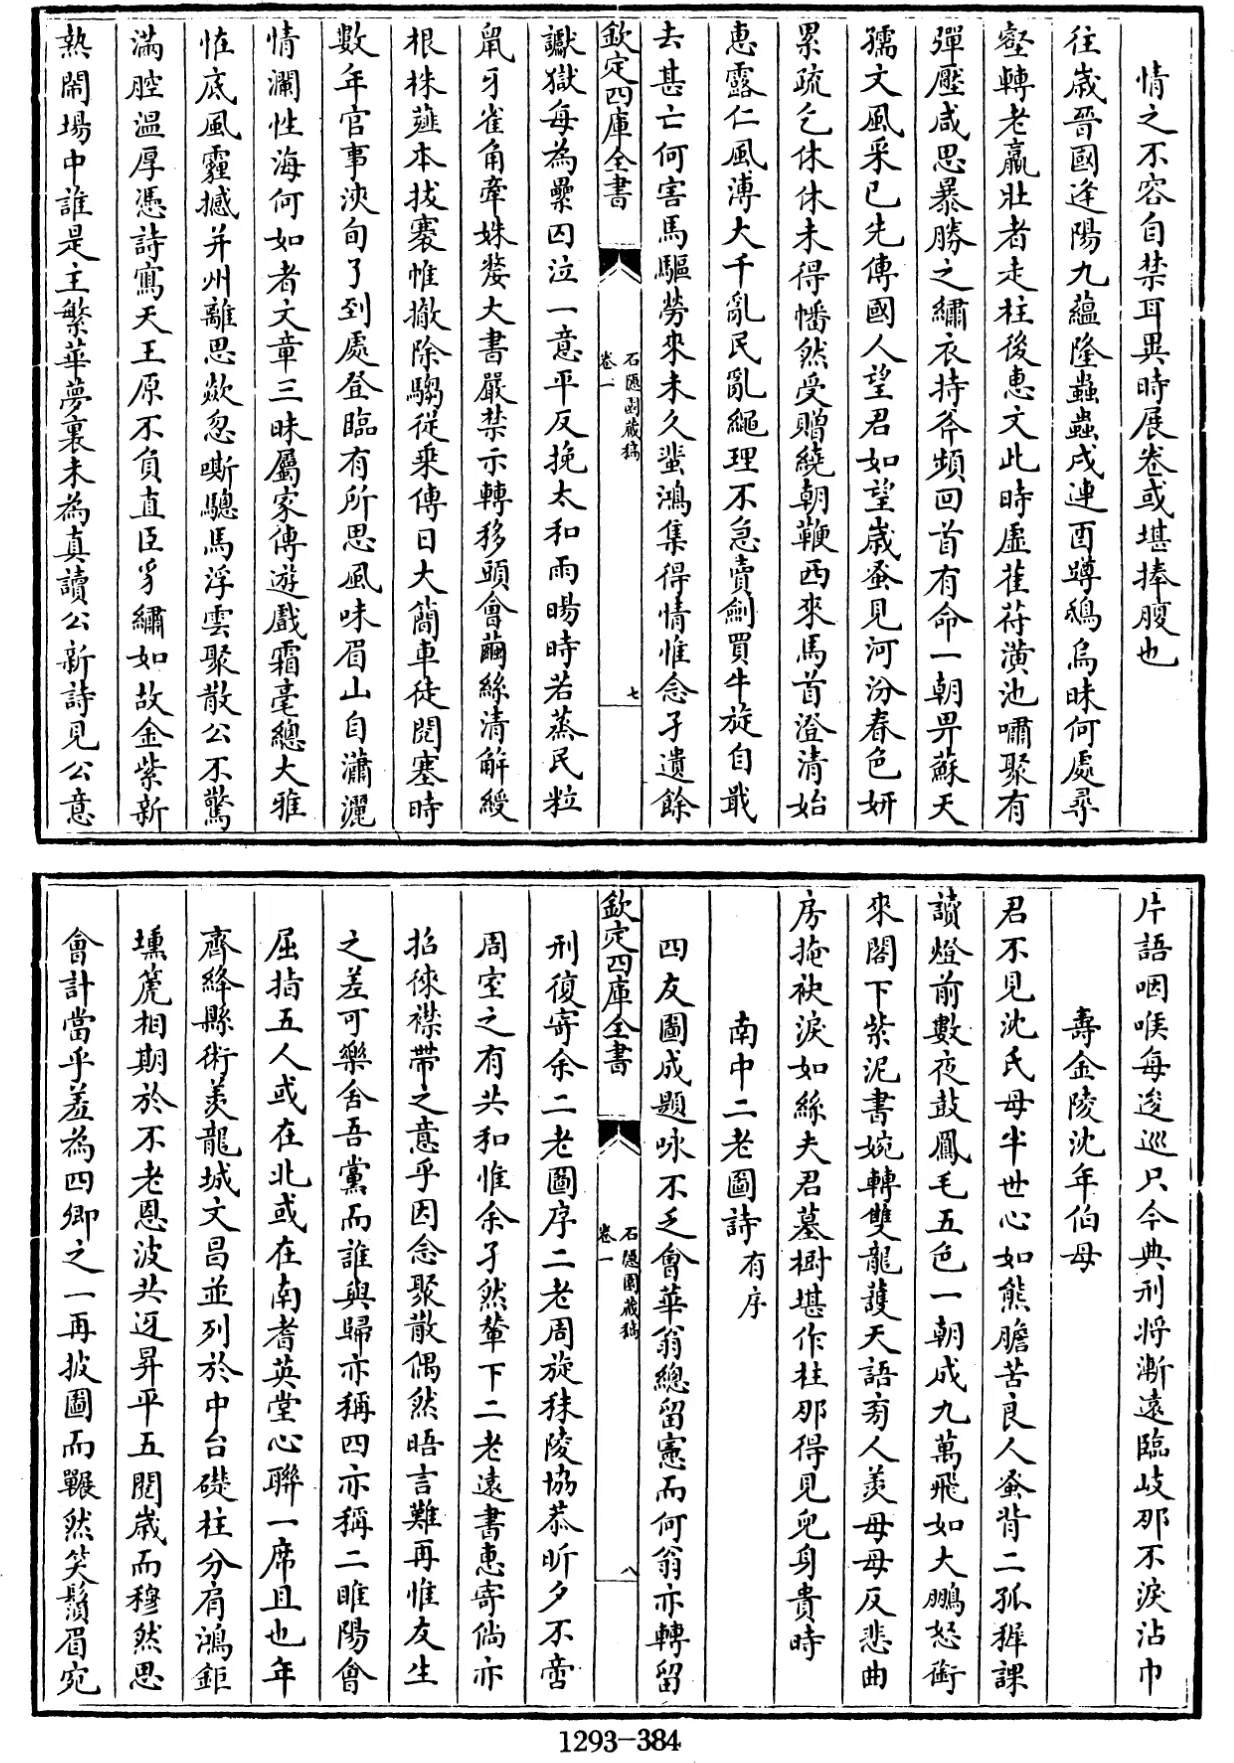 情之不容自禁耳異時展卷或堪捧腹也
往歲晉國逢陽九蘊隆蟲蟲戌連酉蹲鴟烏昧何處尋
壑轉老羸壯者走柱後惠文此時虛萑苻潢池嘯聚有
彈壓咸思暴勝之繡衣持斧頻回首有命一朝畀蘇天
孺文風采已先傳國人望君如望歲蚤見河汾春色妍
累疏乞休休未得幡然受贈繞朝鞭西來馬首澄清始
惠露仁風溥大千亂民亂繩理不急賣劍買牛旋自戢
去甚亡何害馬驅勞來未久蜚鴻集得情惟念孑遺餘
欽定四庫全書
石隱園藏稿
卷一
七
讞獄每為纍囚泣一意平反挽太和雨暘時若蒸民粒
鼠牙雀角牽姝嫠大書嚴禁示轉移頭會繭絲清解綬
根株薤本拔褰帷撤除騶從乘傳日大簡車徒閱塞時
數年官事浹旬了到處登臨有所思風味眉山自瀟灑
情瀾性海何如者文章三昧屬家傳遊戲霜毫總大雅
恠底風霾撼并州離思歘忽嘶驄馬浮雲聚散公不驚
滿腔溫厚憑詩寫天王原不負直臣豸繡如故金紫新
熱鬧場中誰是主繁華夢裏未為真讀公新詩見公意
片語咽喉每逡巡只今典刑將漸遠臨岐那不淚沾巾
壽金陵沈年伯母
君不見沈氏母半世心如熊膽苦良人蚤背二孤穉課
讀燈前數夜鼓鳳毛五色一朝成九萬飛如大鵬怒銜
來閣下紫泥書婉轉雙龍護天語旁人羨母母反悲曲
房掩袂淚如絲夫君墓樹堪作柱那得見兒身貴時
南中二老圖詩有序
四友圖成題咏不乏會華翁總留憲而何翁亦轉留
欽定四庫全書
石隱園藏稿
卷一
八
刑復寄余二老圖序二老周旋秣陵協恭昕夕不啻
周室之有共和惟余孑然輦下二老遠書惠寄倘亦
招徠襟帶之意乎因念聚散偶然晤言難再惟友生
之差可樂舍吾黨而誰與歸亦稱四亦稱二睢陽會
屈指五人或在北或在南耆英堂心聯一席且也年
齊絳縣術羨龍城文昌並列於中台礎柱分肩鴻鉅
壎箎相期於不老恩波共迓昇平五閱歲而穆然思
會計當乎羞為四卿之一再披圖而囅然笑鬚眉宛
1293-384